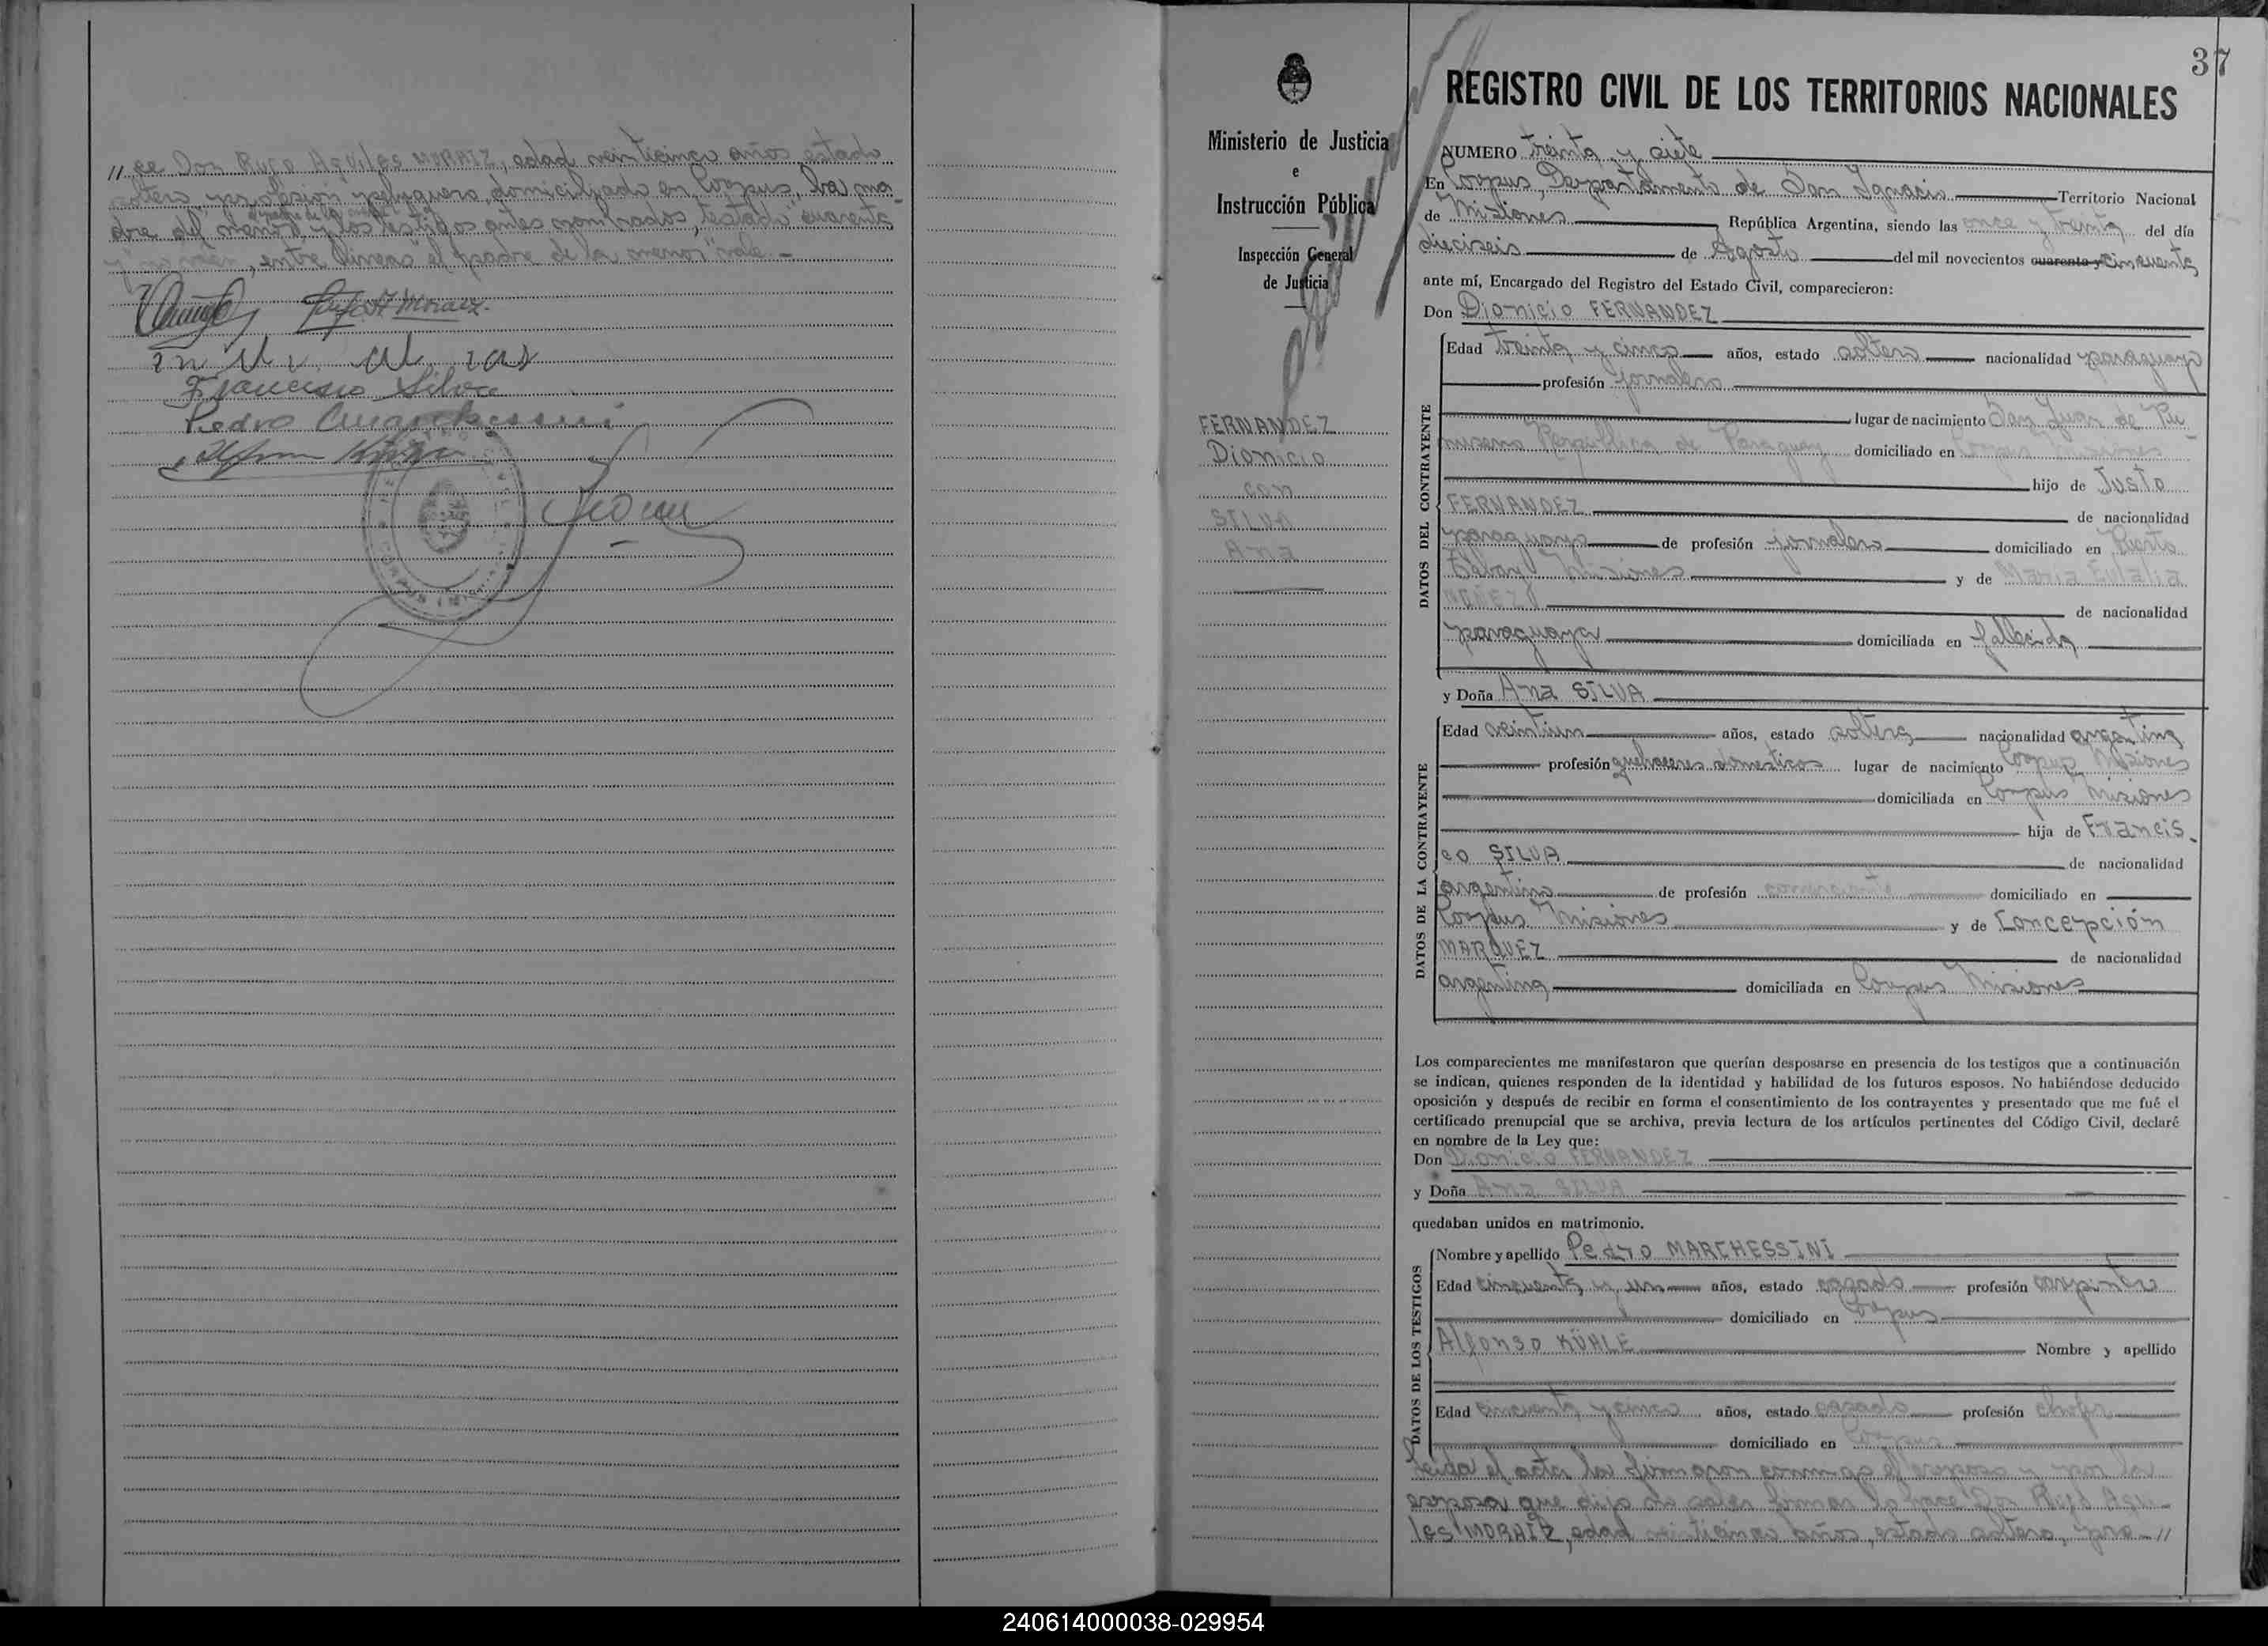 // ce Don Rufo Aquiles MORAIZ, edad veinticinco años, estado
soltero, profesión peluquero, domiciliado en Corpus, la ma-
el padre de la menor
dre del menor y los testigos antes nombrados, testado "cuarenta
y", entre lineas "el padre de la menor" vale.-
Rufo A Moraez.
Francisco Silva
Pedro Marchessini
37
Ministerio de Justicia
e
Instrucción Pública
Inspección General
de Justicia
FERNANDEZ
Dionicio
con
SILVA
Ana
REGISTRO CIVIL DE LOS TERRITORIOS NACIONALES
NUMERO treinta y siete
En Corpus, Departamento de San Ignacio Territorio Nacional
de Misiones República Argentina, siendo las once y treinta del día
dieciseis de Agosto del mil novecientos cuarenta y cincuenta
ante mí, Encargado del Registro del Estado Civil, comparecieron:
Don Dionicio FERNANDEZ
DATOS DEL CONTRAYENTE
Edad treinta y cinco años, estado soltero nacionalidad paraguayo
profesión jornalero
lugar de nacimiento San Juan de
República de Paraguay domiciliado en Corpus Misiones
hijo de Justo
FERNANDEZ de nacionalidad
paraguayo de profesión jornalero domiciliado en Puerto
Misiones y de María Eulalia
de nacionalidad
paraguaya domiciliada en fallecida
y Doña Ana SILVA
DATOS DE LA CONTRAYENTE
Edad veintiun años, estado soltera nacionalidad argentina
profesión quehaceres domesticos lugar de nacimiento Corpus Misiones
domiciliada en Corpus Misiones
hija de Francis-
co SILVA de nacionalidad
argentino de profesión comerciante domiciliado en
Corpus Misiones y de Concepción
MARQUEZ de nacionalidad
argentina domiciliada en Corpus Misiones
Los comparecientes me manifestaron que querían desposarse en presencia de los testigos que a continuación
se indican, quienes responden de la identidad y habilidad de los futuros esposos. No habiéndose deducido
oposición y después de recibir en forma el consentimiento de los contrayentes y presentado que me fué el
certificado prenupcial que se archiva, previa lectura de los artículos pertinentes del Código Civil, declaré
en nombre de la Ley que:
Don Dionicio FERNANDEZ
y Doña Ana SILVA
quedaban unidos en matrimonio.
DATOS DE LOS TESTIGOS
Nombre y apellido Pedro MARCHESSINI
Edad cincuenta y un años, estado casado profesión carpintero
domiciliado en Corpus
Alfonso KÜHLE Nombre y apellido
Edad cincuenta y cinco años, estado casado profesión chofer
domiciliado en Corpus
leida el acta la firmaron conmigo el esposo y por la
esposa que dijo no saber firmar lo hace Don Rufo Aqui-
les MORAIZ, edad veinticinco años, estado soltero, pro-//
240614000038-029954